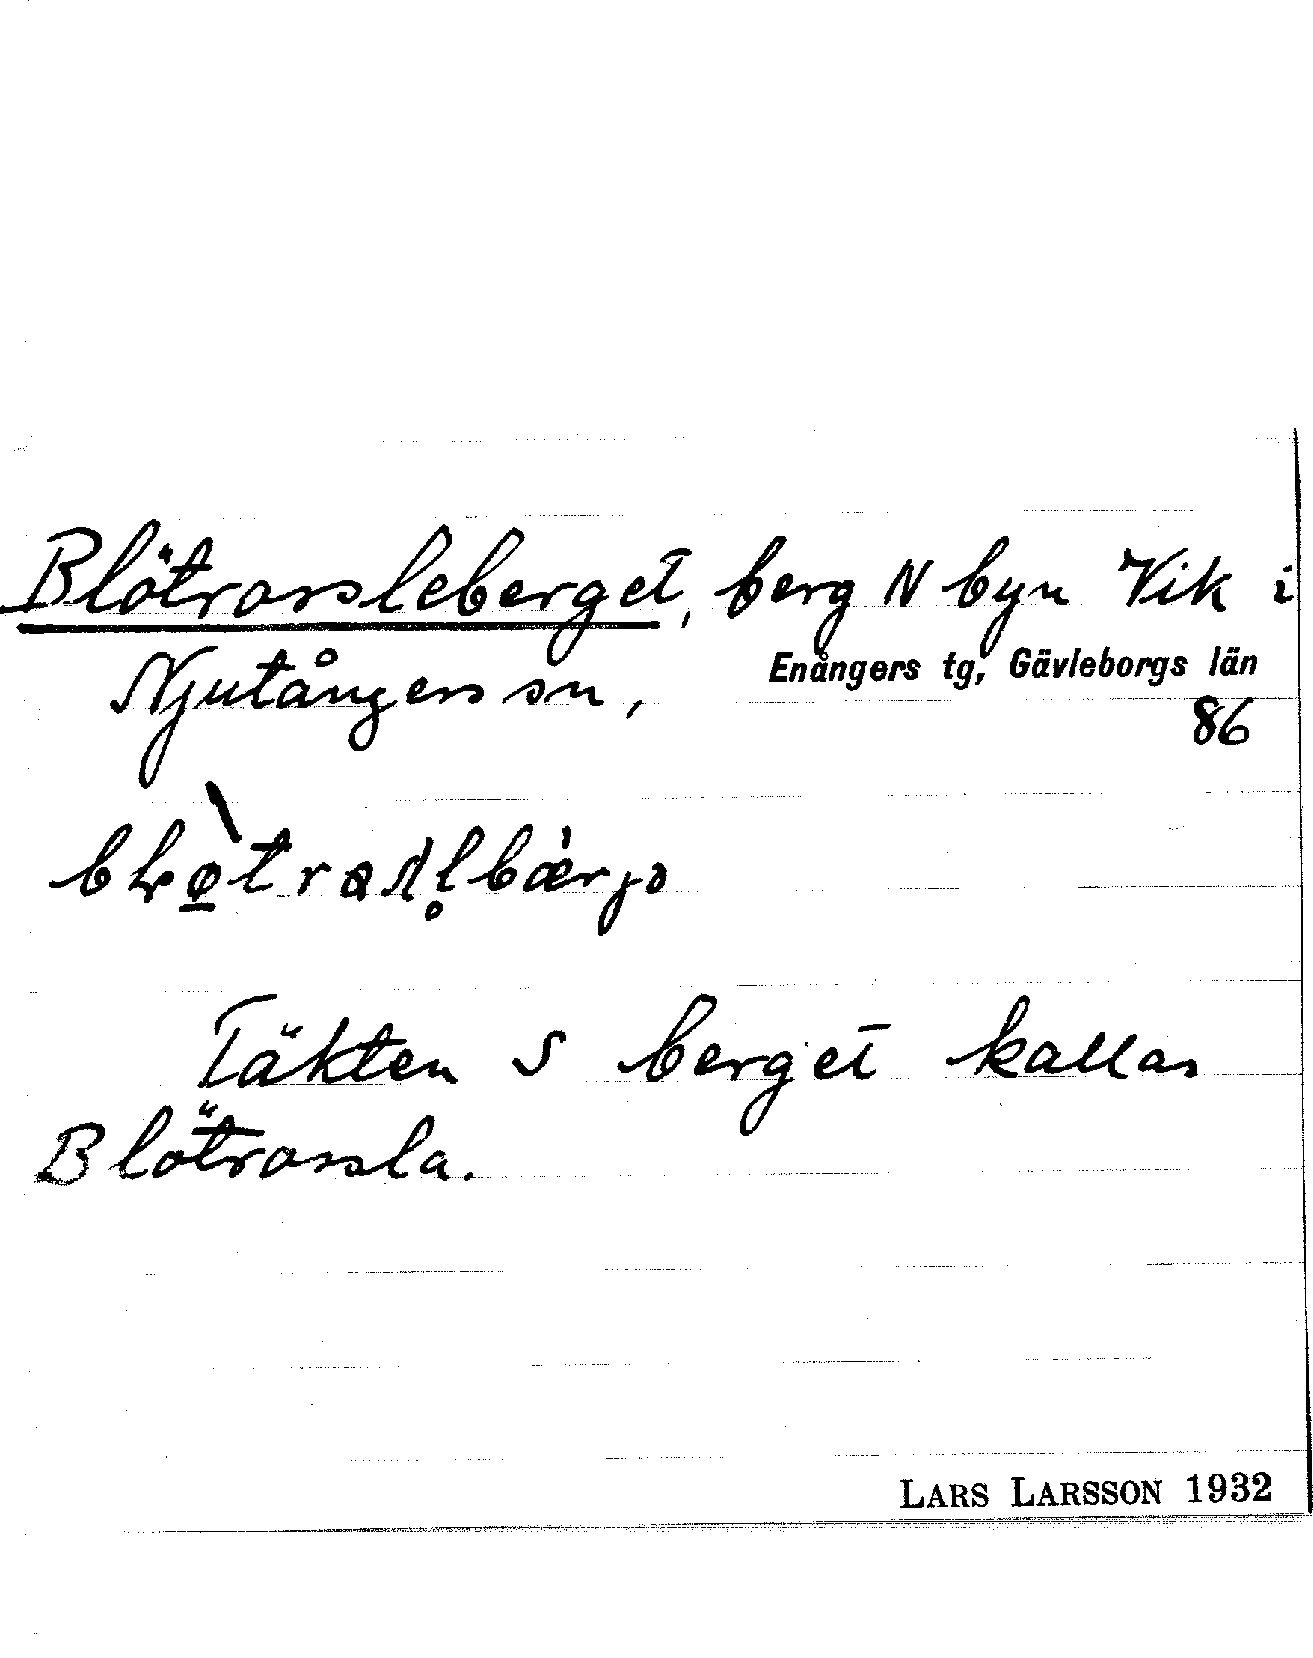 Blötrassleberget, berg N byn Vik i
Njutångers sn, Enångers tg, Gävleborgs län
86
Täkten S berget kallas
Blötrassla.
LARS LARSSON 1932